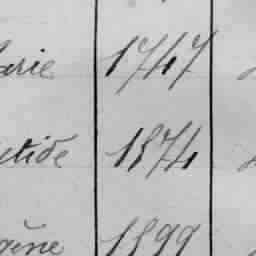 arie 1747
ctide 1874
gène 1899